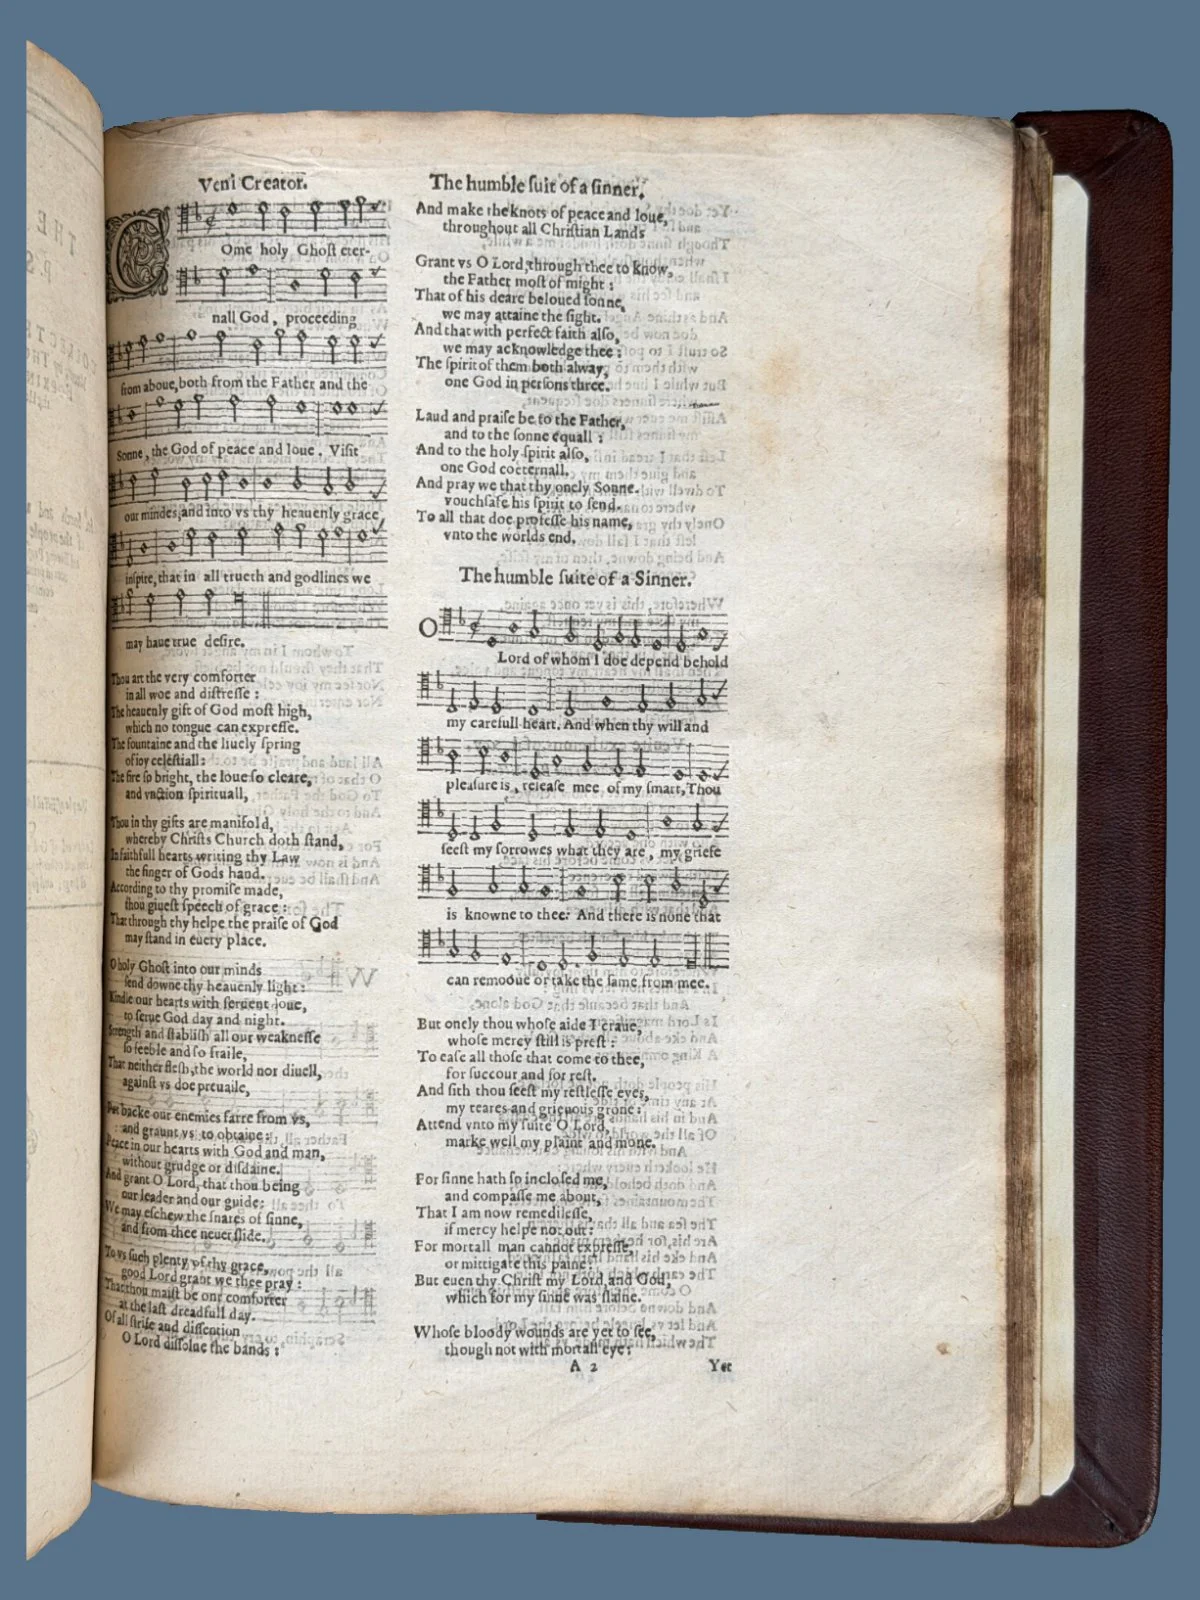 Veni Creator.
COme holy Ghoſt eter-
nall God, proceeding
from aboue, both from the Father and the
Sonne, the God of peace and loue. Viſit
our mindes, and into vs thy heauenly grace
inſpire, that in all trueth and godlines we
may haue true deſire.
Thou art the very comforter
in all woe and diſtreſſe :
The heauenly gift of God moſt high,
which no tongue can expreſſe.
The fountaine and the liuely ſpring
of ioy celeſtiall :
The fire ſo bright, the loue ſo cleare,
and vnction ſpirituall,
Thou in thy gifts are manifold,
whereby Chriſts Church doth ſtand,
In faithfull hearts writing thy Law
the finger of Gods hand.
According to thy promiſe made,
thou giueſt ſpeech of grace :
That through thy helpe the praiſe of God
may ſtand in euery place.
O holy Ghoſt into our minds
ſend downe thy heauenly light :
Kindle our hearts with feruent loue,
to ſerue God day and night.
Strength and ſtabliſh all our weakneſſe
ſo feeble and ſo fraile,
That neither fleſh, the world nor diuell,
againſt vs doe preuaile,
Put backe our enemies farre from vs,
and graunt vs to obtaine :
Peace in our hearts with God and man,
without grudge or diſdaine.
And grant O Lord, that thou being
our leader and our guide:
We may eſchew the ſnares of ſinne,
and from thee neuer ſlide.
To vs ſuch plenty of thy grace,
good Lord grant we thee pray :
That thou maiſt be our comforter
at the laſt dreadfull day.
Of all ſtrife and diſſention
O Lord diſſolue the bands :
The humble ſuit of a ſinner.
And make the knots of peace and loue,
throughout all Chriſtian Lands
Grant vs O Lord, through thee to know,
the Father moſt of might :
That of his deare beloued ſonne,
we may attaine the ſight.
And that with perfect faith alſo,
we may acknowledge thee :
The ſpirit of them both alway,
one God in perſons three.
Laud and praiſe be to the Father,
and to the ſonne equall :
And to the holy ſpirit alſo,
one God coeternall.
And pray we that thy onely Sonne.
vouchſafe his ſpirit to ſend.
To all that doe profeſſe his name,
vnto the worlds end.
The humble ſuite of a Sinner.
O Lord of whom I doe depend behold
my carefull heart. And when thy will and
pleaſure is, releaſe mee of my ſmart, Thou
ſeeſt my ſorrowes what they are, my griefe
is knowne to thee: And there is none that
can remooue or take the ſame from mee.
But onely thou whoſe aide I craue,
whoſe mercy ſtill is preſt :
To eaſe all thoſe that come to thee,
for ſuccour and for reſt.
And ſith thou ſeeſt my reſtleſſe eyes,
my teares and grieuous grone :
Attend vnto my ſuite O Lord,
marke well my plaint and mone.
For ſinne hath ſo incloſed me,
and compaſſe me about,
That I am now remedileſſe,
if mercy helpe not out :
For mortall man cannot expreſſe,
or mittigate this paine :
But euen thy Chriſt my Lord, and God,
which for my ſinne was ſlaine.
Whoſe bloody wounds are yet to ſee,
though not with mortall eye :
A 2 Yet